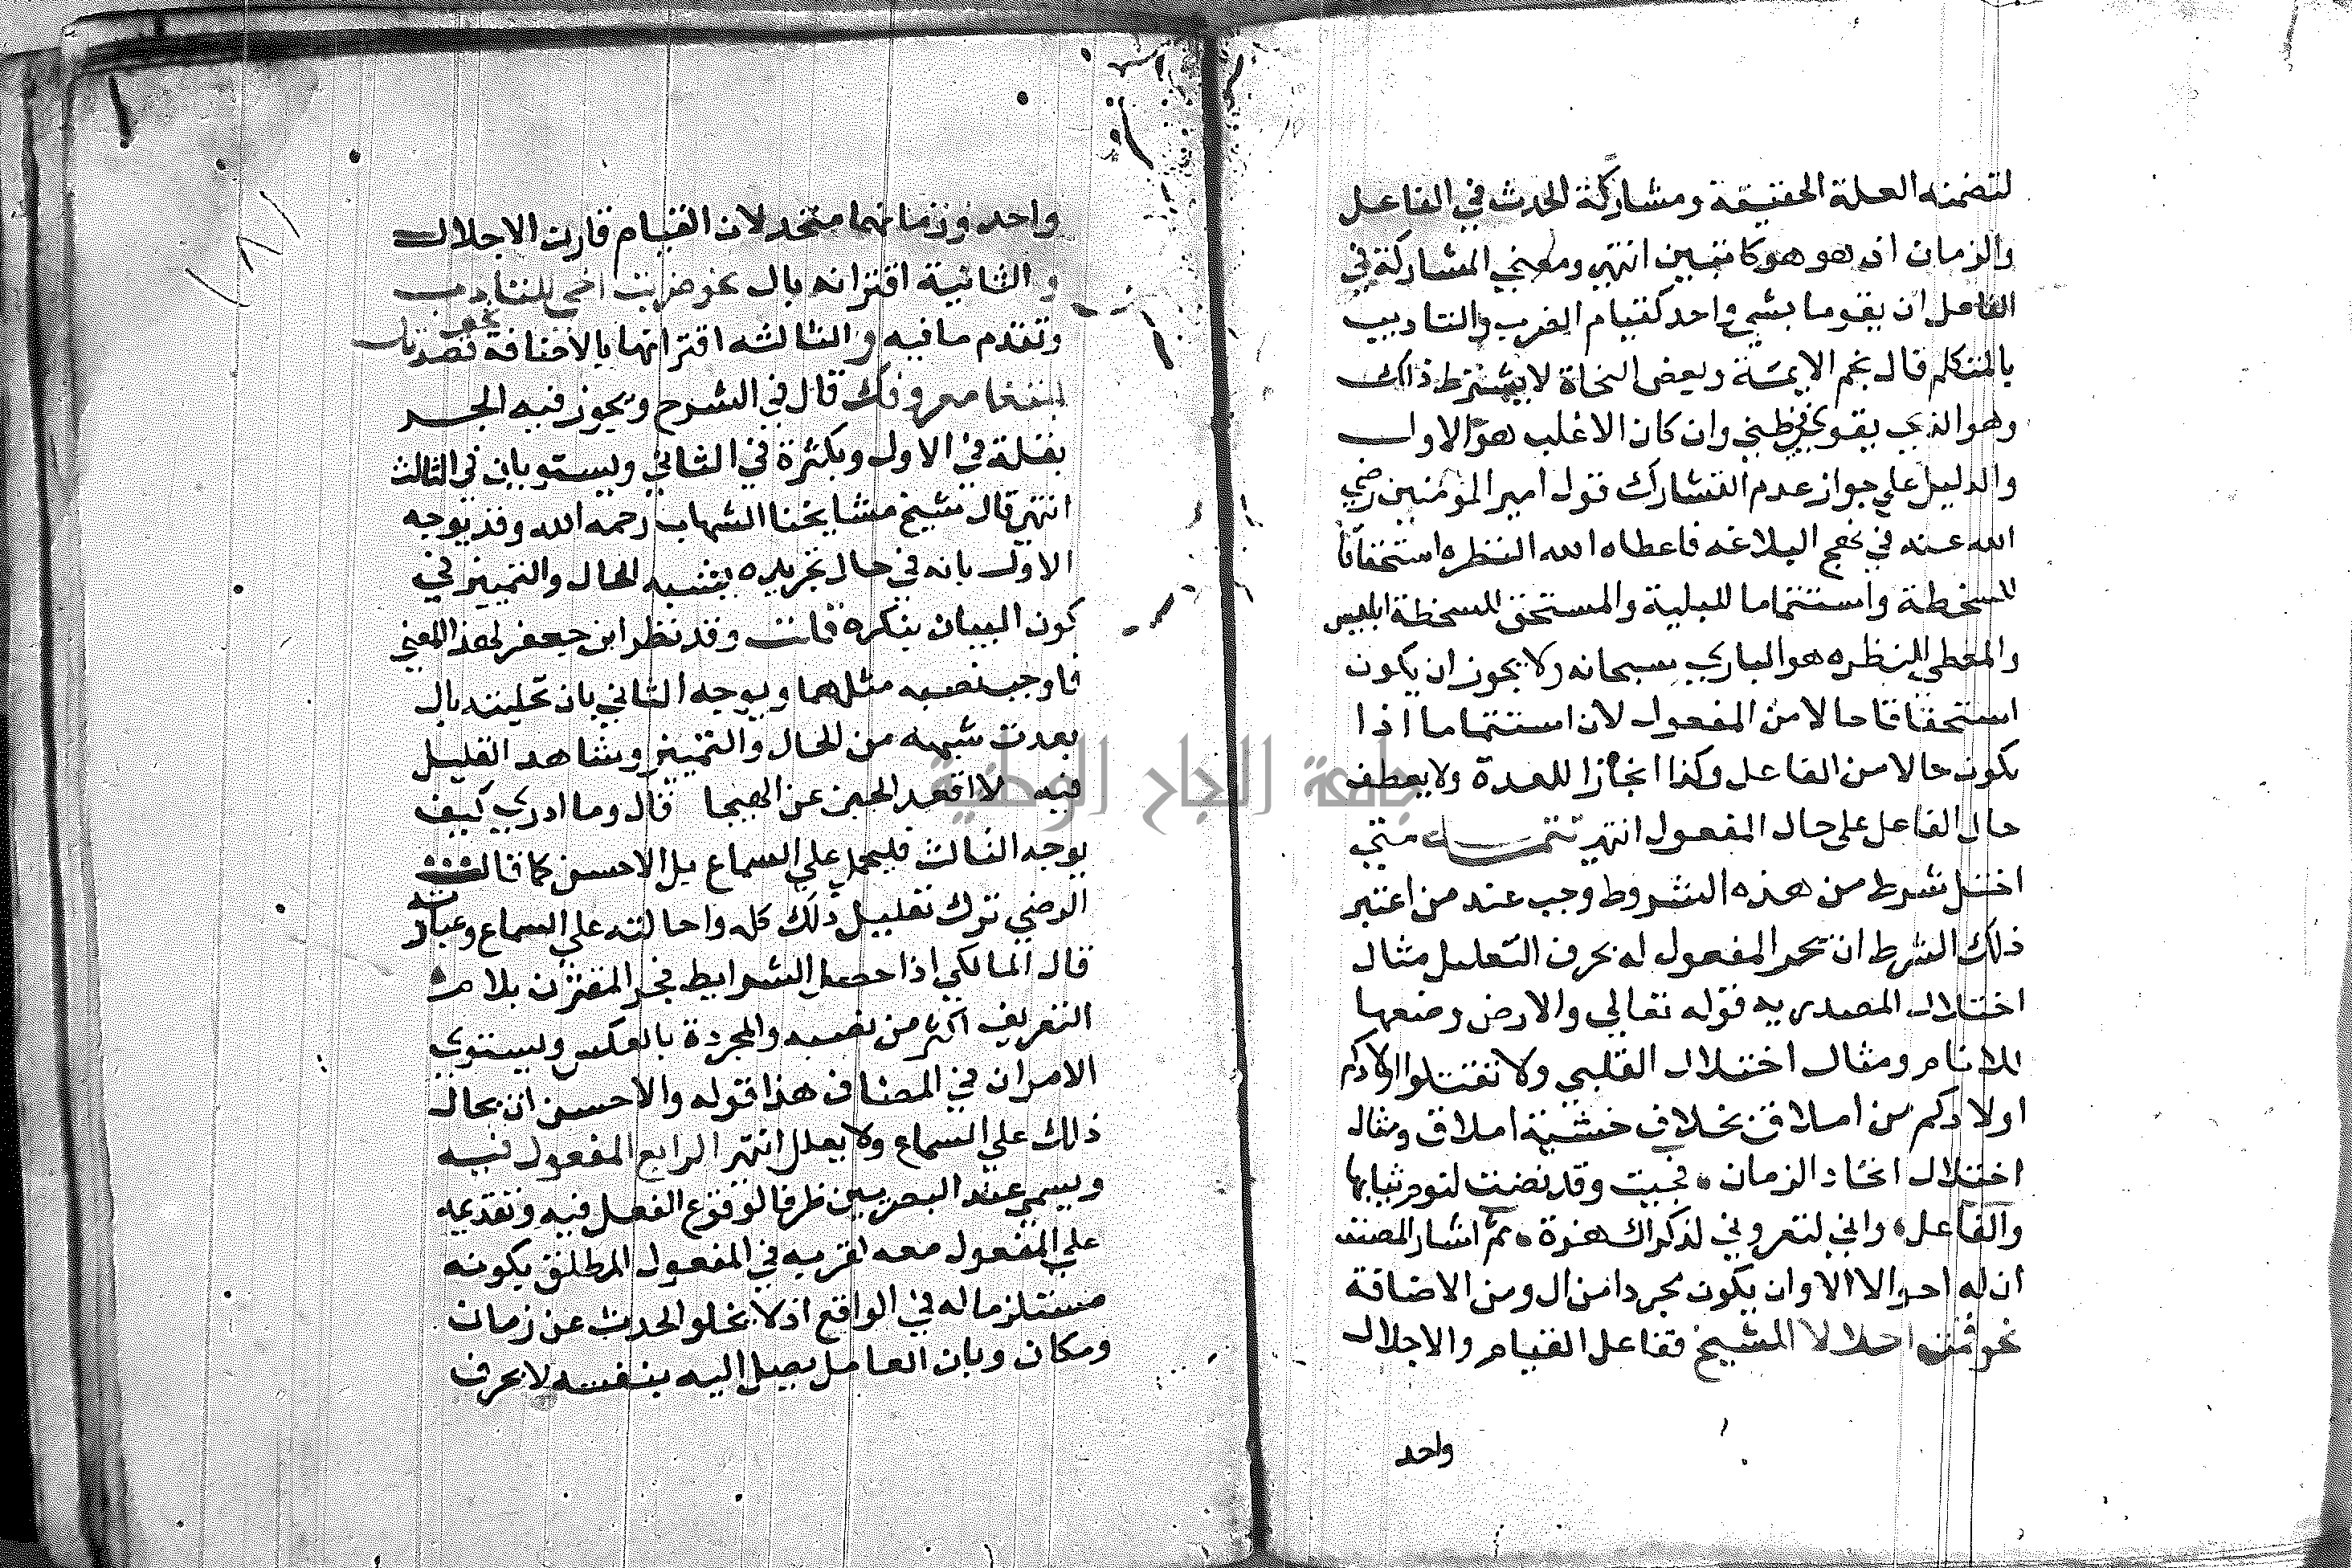 لتضمنه العلة الحقيقة ومشاركة الحدث في الفاعل
والزمان اذ هو هو كا تبيين انتهى ومعنى المشاركة في
الفاعل ان يقوما بشي واحد كقيام الضرب والتاديب
بالمتكلم قال نجم الايمة وبعض النحاة لا يشترط ذلك
وهو الذي يقوى في ظني وان كان الاغلب هو الاول
والدليل على جواز عدم التشارك قول امير المومنين رضي
الله عنه في نهج البلاغه فاعطاه الله النظره استحقاقا
للسخطة واستتماما للبلية والمستحق للسخطة ابليس
والمعطي للنظره هو الباري سبحانه ولا يجوز ان يكون
استحقاقا حالا من المفعول لان استتماما اذا
يكون حالا من الفاعل وكذا انجازا للعدة ولا يعطف
حال الفاعل على حال المفعول انتهى تتمـــه متى
اختل شرط من هذه الشروط وجب عند من اعتبر
ذلك الشرط ان يجر المفعول له بحرف التعليل مثال
اختلال المصدريه قوله تعالى والارض وضعها
للانام ومثال اختلال القلبي ولا تقتلوا اولادكم
اولادكم من املاق بخلاف خشية املاق ومثال
اختلال اتحاد الزمان • فجيت وقد نضت لنوم ثيابها
والفاعل • واني لتعروني لذكراك هزة • ثم اشار المصنف
ان له احوالا الاول ان يكون مجردا من ال ومن الاضافة
نحو قمت اجلالا للشيخ ففاعل القيام والاجلال
واحد
واحد وزمانهما متحد لان القيام قارن الاجلال
والثانية اقترانه بال نحو ضربت ابني للتاديب
وتقدم ما فيه والثالثه اقترانها بالاضافة نحو قصدتك
ابتغا معروفك قال في الشرح ويجوز فيه الجر
بقلة في الاول وبكثرة في الثاني ويستويان في الثالث
انتهى قال شيخ مشايخنا الشهاب رحمه الله وقد يوجه
الاول بانه في حال تجريده يشبه الحال والتمييز في
كون البيان بنكره قالت وقد نظر ابن جعفر لهذا المعني
فاوجب نصبه مثلهما ويوجه الثاني بان تحليته بال
بعدت شبهه من الحال والتمييز وشاهد القليل
فيه لا اقعد الجبن عن الهيجا قال وما ادري كيف
يوجه الثالث فليحمل على السماع بل الاحسن كما قال
الرضي ترك تعليل ذلك كله واحالته على السماع وعبارته
قال المالكي اذا حصل الشرايط فجر المقترن بلام
التعريف اكثر من نصبه والمجردة بالعكس ويستوي
الامران في المضاف هذا قوله والاحسن ان يحال
ذلك على السماع ولا يعلل انتهى الرابع المفعول فيه
ويسمى عند البصريين ظرفا لوقوع الفعل فيه وتقديمه
على المفعول معه لقربه في المفعول المطلق بكونه
مستلزما له في الواقع اذ لا يخلو الحدث عن زمان
ومكان وبان العامل يصل اليه بنفسه لا بحرف
جامعة النجاح الوطنية